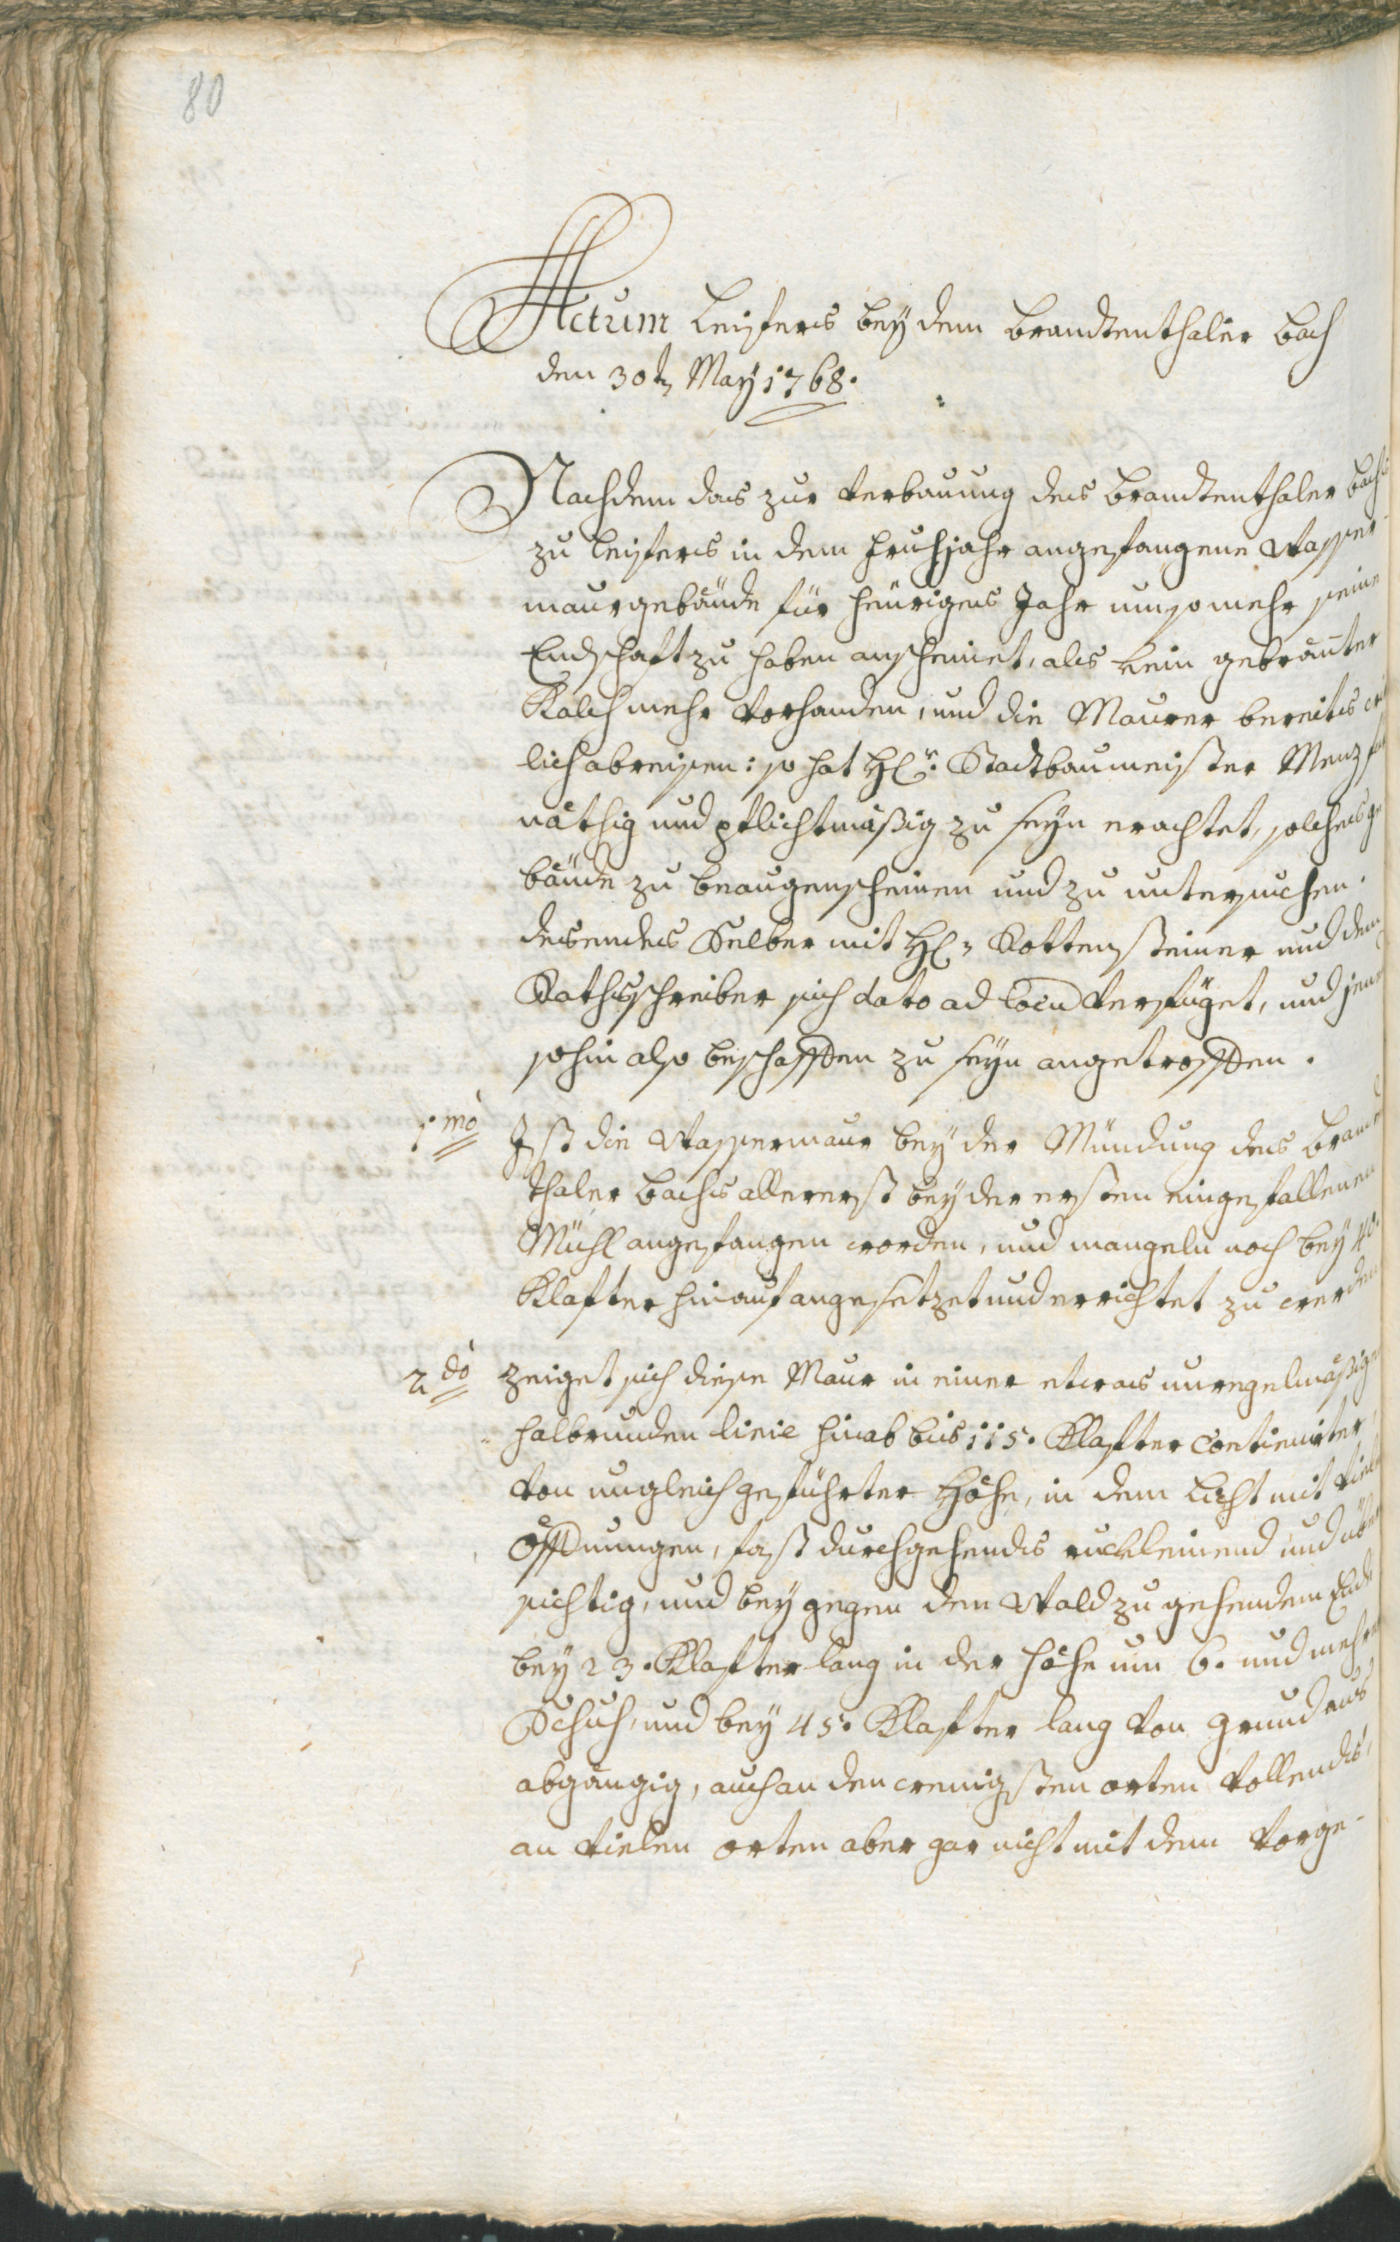 80
Actum Leifers bey dem Brandtenthaler Bach
den 30t. May 1768.
Nachdem das zur Verbauung des Brandtenthaler Bachs
zu Leifers in dem Fruhjahr angefangene Wasser-
maurgebäude für heüriges Jahr umsomehr seine
Endschaft zu haben anscheinet, als kein gebrannter
Kalch mehr vorhanden, und die Maurer bereits
lich abreisen: so hat H. Stadtbaumeister Menz
näthig und pflichtmäßig zu seyn erachtet, solches ge
bäude zu beaugenscheinen und zu untersuchen.
dessendes Selber mit H. Rottensteiner und dem
Rathsschreiber sich dato ad locum verfüget, und jene
sohin also beschaffen zu seyn angetroffen.
1mò Ist die Wassermaur bey der Mündung des Brandt
thaler Bachs allererst bey der ersten eingefallenen
Mühl angefangen worden, und mangeln noch bey 40.
Klafter hinauf angesetzet und errichtet zu werden
2dò zeiget sich diese Maur in einer etwas unregelmäßigen
halbrunden linie hinab bis 115. Klafter continuirter,
von ungleich geführter Höhe, in dem Licht mit viel
öffnungen, fast durchgehends ruckleinend und
sichtig, und bey gegen den Wald zu gehendem Ende
bey 23. Klafter lang in der Höhe um 6. und mehr
Schuh, und bey 45. Klafter lang von grund aus
abgängig, auch an den wenigsten orten vollends,
an vielen orten aber gar nicht mit dem Vorge-